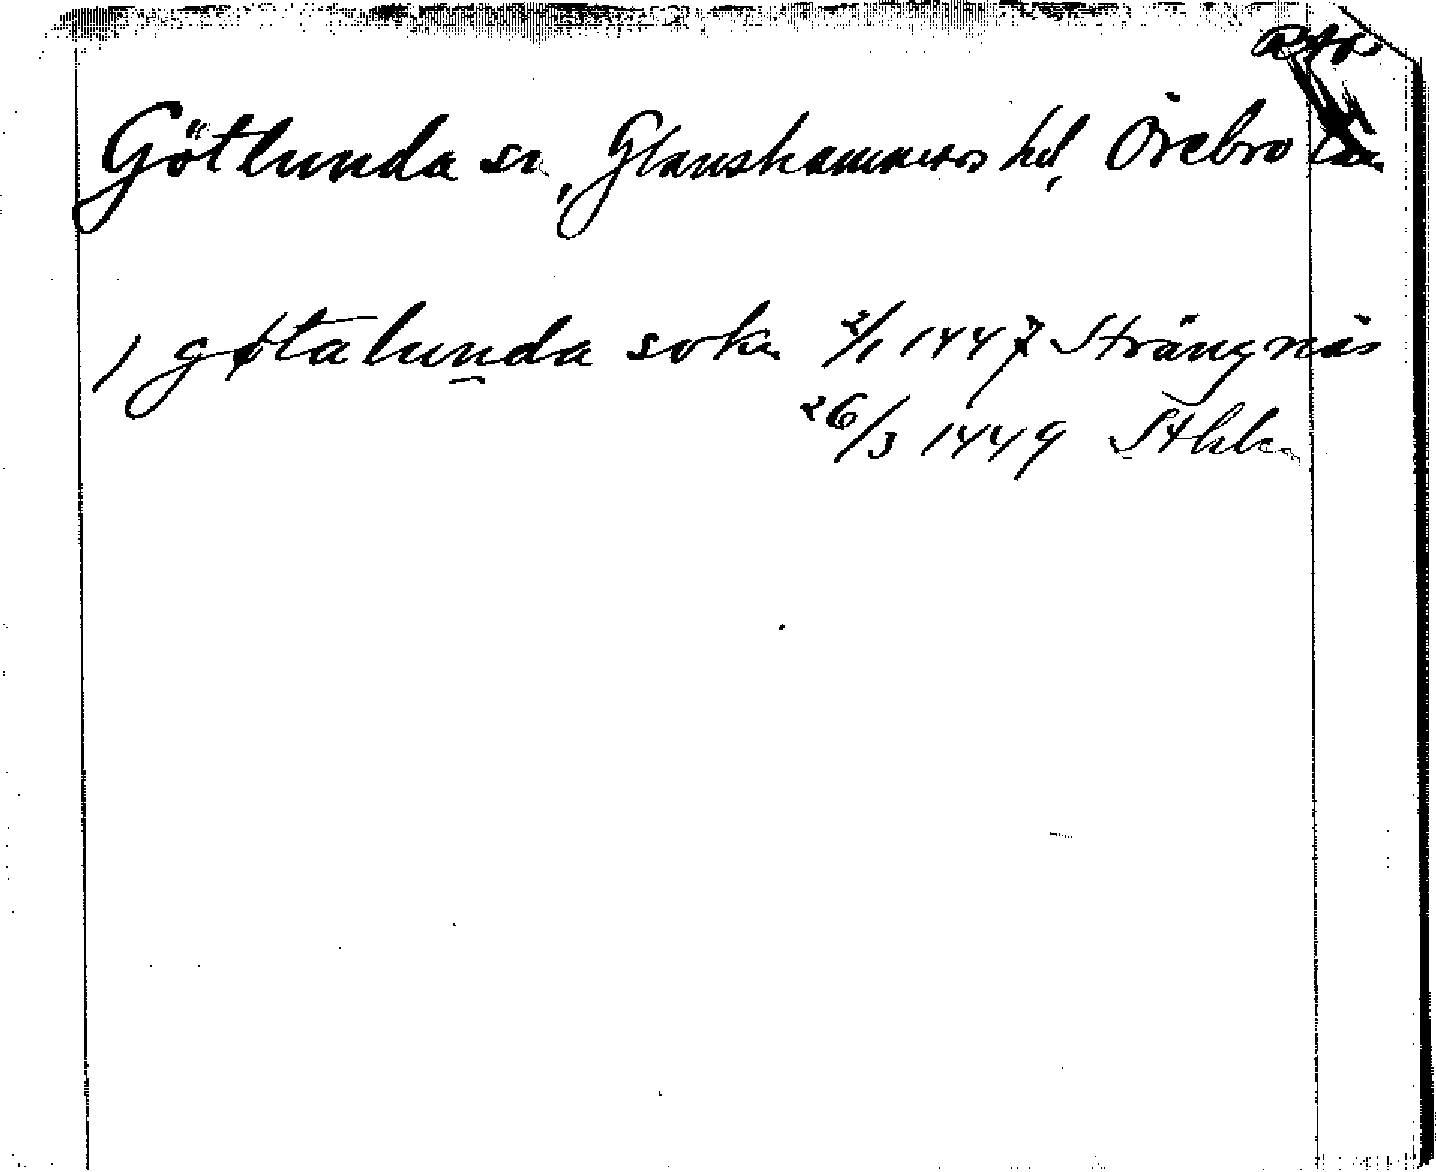 RAp
Götlunda sn, Glanshammars hd, Örebro län
) gøtalunda sokn 2/1 1447 Strängnäs
26/3 1449 Sthlm